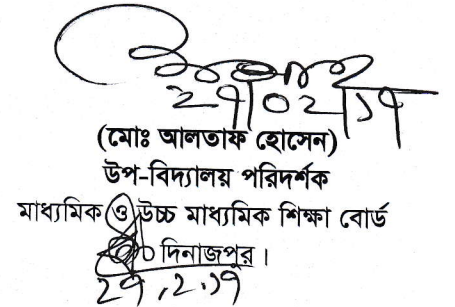 ২৭/০২/১৭
(মোঃ আলতাফ হোসেন)
উপ-বিদ্যালয় পরিদর্শক
মাধ্যমিক ও উচ্চ মাধ্যমিক শিক্ষা বোর্ড
দিনাজপুর।
২৭.২.১৭